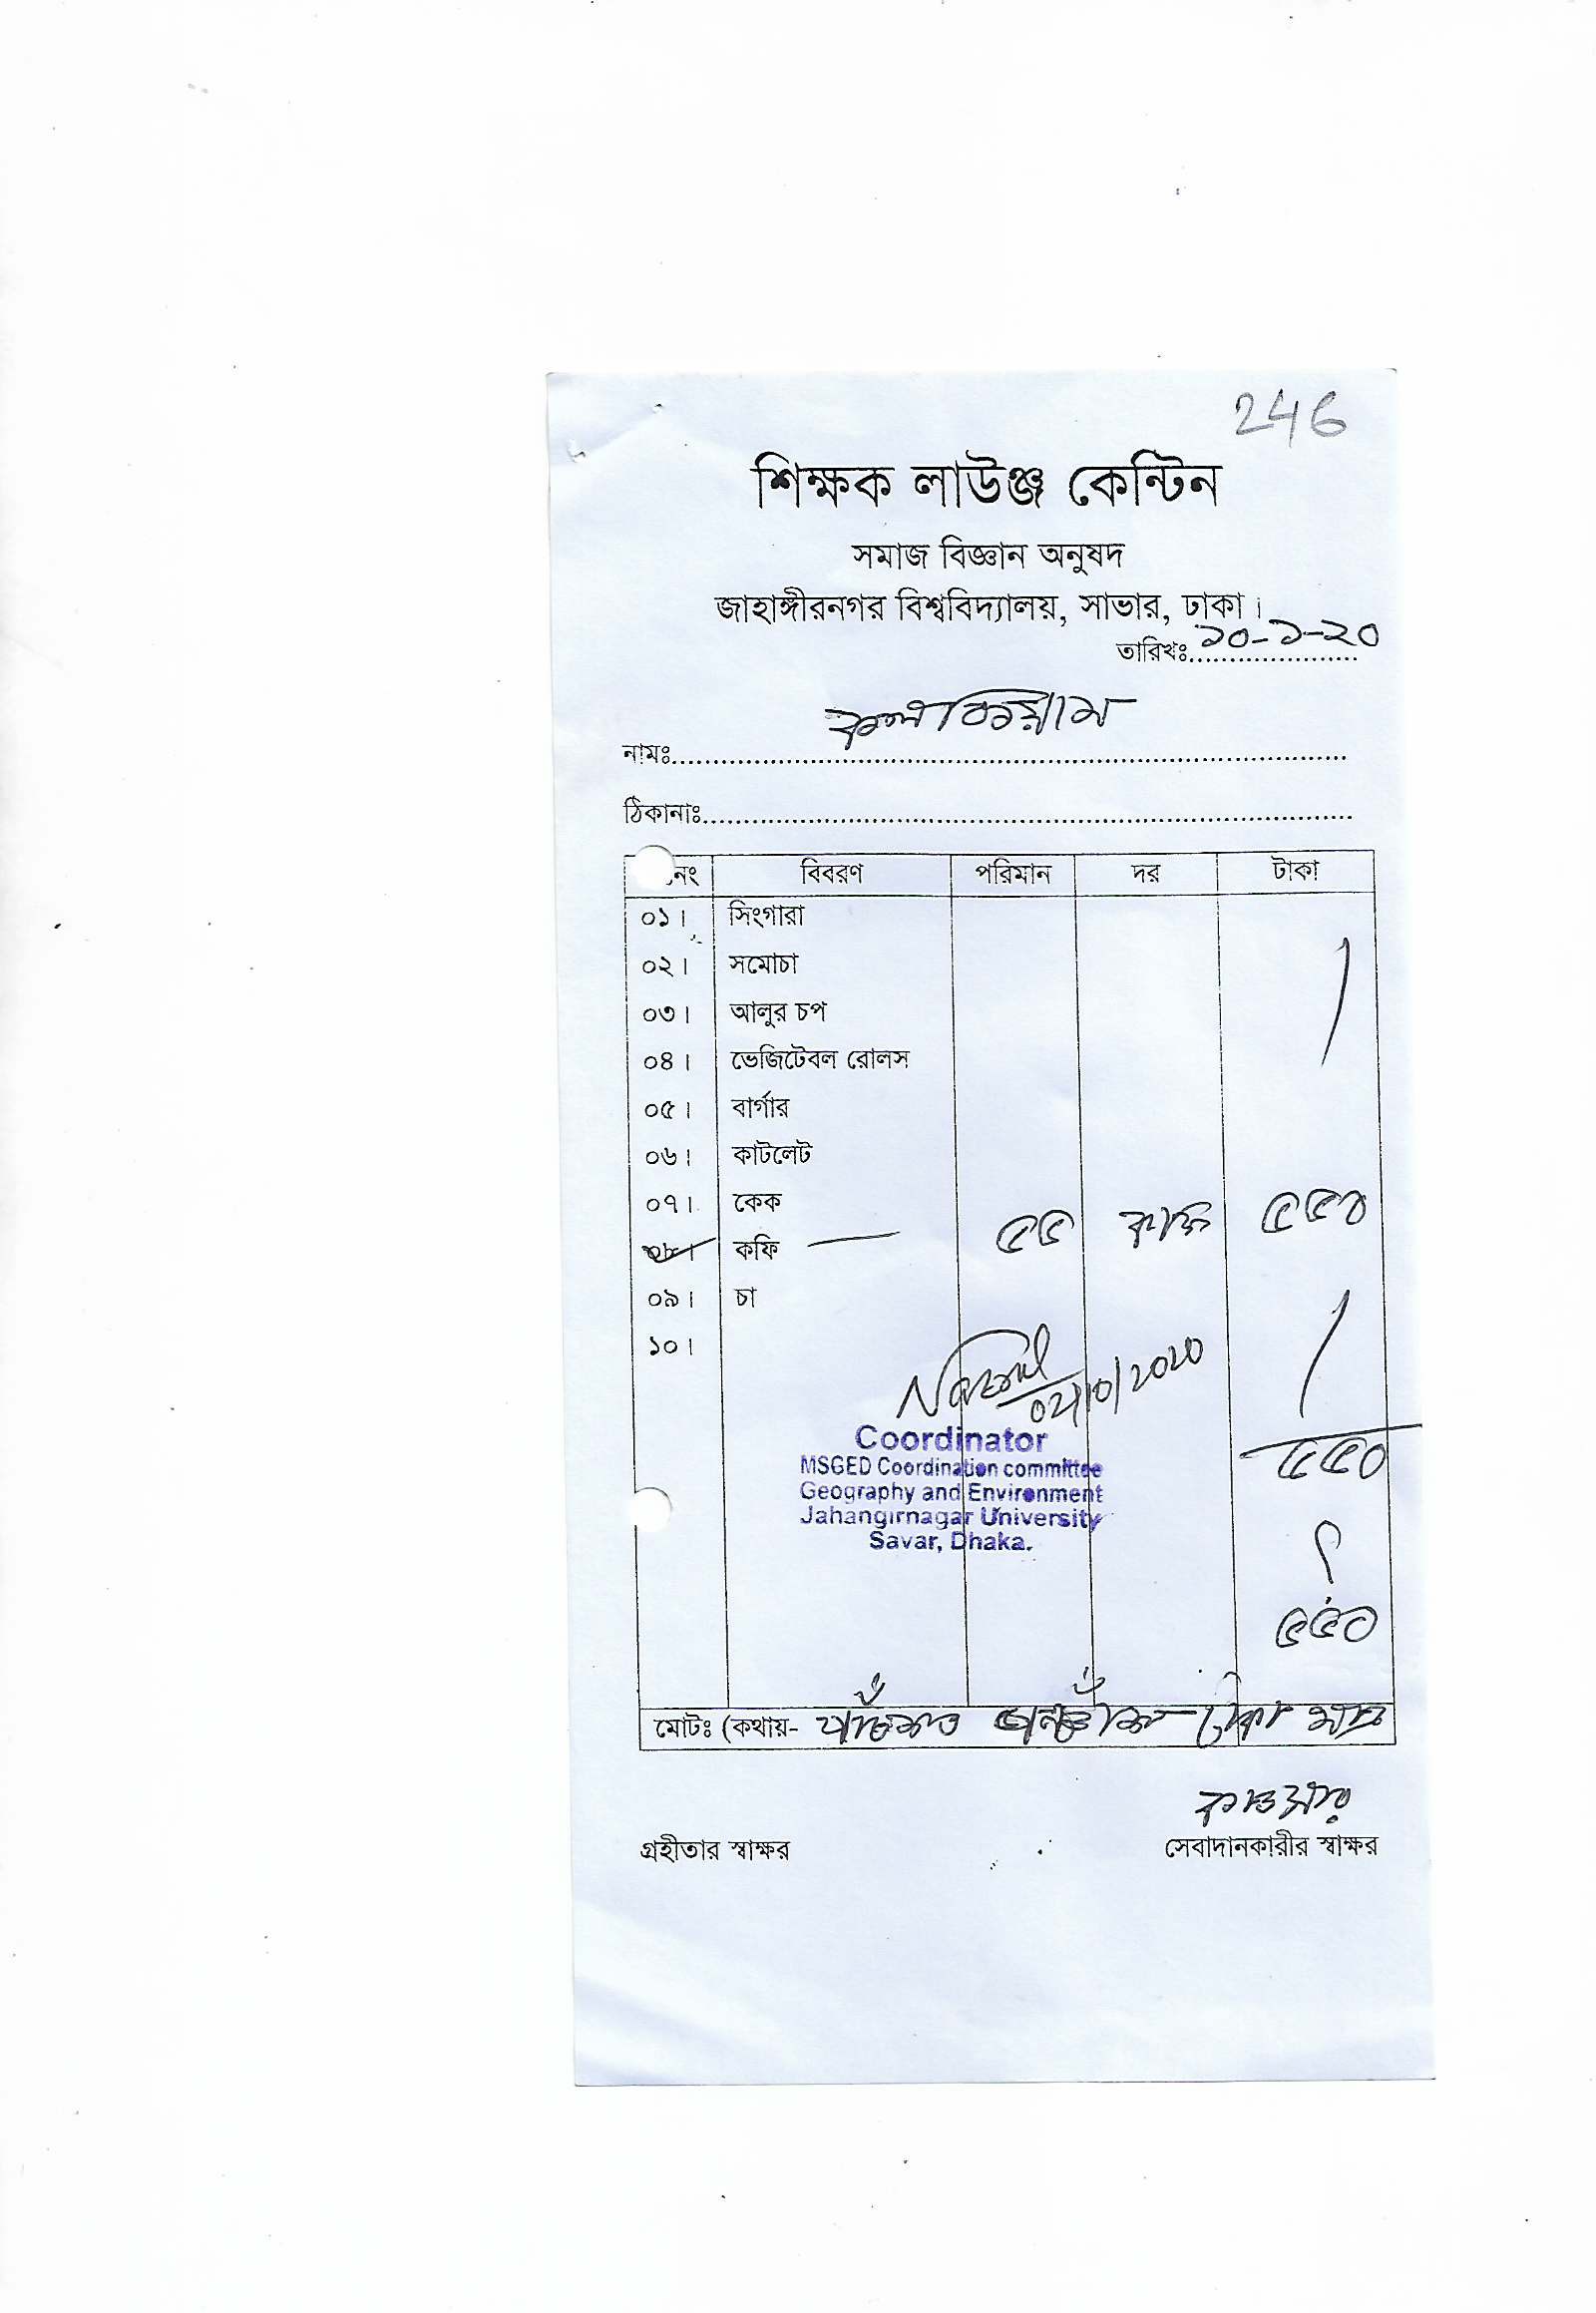 246
শিক্ষক লাউঞ্জ কেন্টিন
সমাজ বিজ্ঞান অনুষদ
জাহাঙ্গীরনগর বিশ্ববিদ্যালয়, সাভার, ঢাকা।
তারিখঃ ১০-১-২০
নামঃ
ঠিকানাঃ
নং বিবরণ পরিমান দর টাকা
০১। সিংগারা
০২। সমোচা
০৩। আলুর চপ
০৪। ভেজিটেবল রোলস
০৫। বার্গার
০৬। কাটলেট
০৭। কেক
০৮। কফি — ৫৫ কাপ ৫৫০
০৯। চা
১০।
৫৫০
Coordinator
MSGED Coordination committee
Geography and Environment
Jahangirnagar University
Savar, Dhaka.
৫৫০
মোটঃ (কথায়- পাঁচশত টাকা মাত্র
গ্রহীতার স্বাক্ষর সেবাদানকারীর স্বাক্ষর